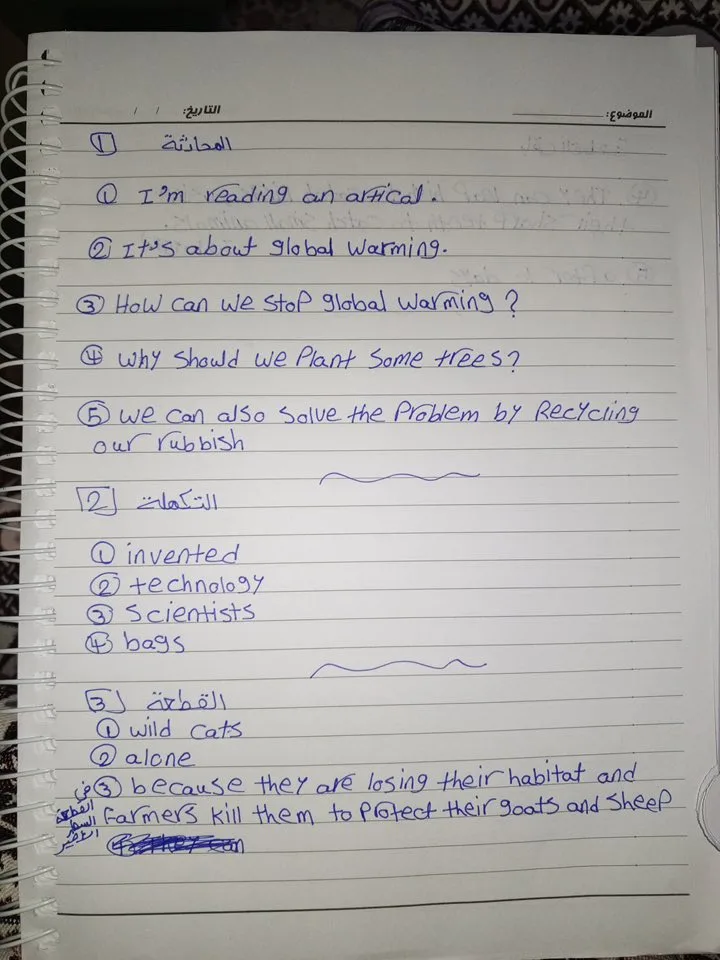 الموضوع: التاريخ: / /
1 المحادثة
① I'm reading an artical.
② It's about global warming.
③ How can we stop global warming?
④ Why should we plant some trees?
⑤ we can also solve the problem by Recycling
our rubbish
2 التكملة
① invented
② technology
③ Scientists
④ bags
3 القطعة
① wild cats
② alone
③ because they are losing their habitat and
farmers kill them to protect their goats and sheep
في
القطعة
السطر
الأخير